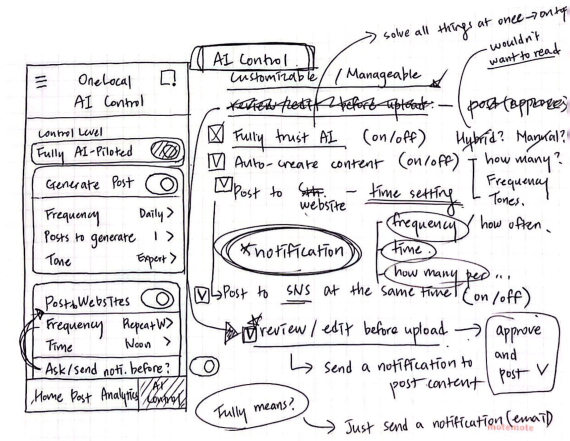 OneLocal
AI Control
Control Level
Fully AI-Piloted
Generate Post
Frequency Daily >
Posts to generate 1 >
Tone Expert >
Post to Websites
Frequency Repeat W>
Time Noon >
Ask/send noti. before?
Home Post Analytics AI Control
AI Control
Customizable / Manageable
review/edit before upload — post (approves)
solve all things at once → on top
wouldn't
want to read
Fully trust AI (on/off) Hybrid? Manual?
Auto-create content (on/off) how many?
Frequency
Tones.
Post to website — time setting
frequency / how often.
time.
how many per ...
*notification
Post to SNS at the same time (on/off)
review / edit before upload →
approve
and
post V
↳ send a notification to
post content
Fully means?
↳ Just send a notification (email)
motemote